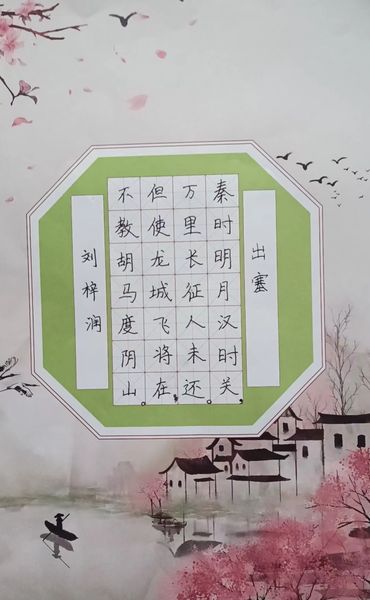 出塞
秦时明月汉时关，
万里长征人未还。
但使龙城飞将在，
不教胡马度阴山。
刘梓润